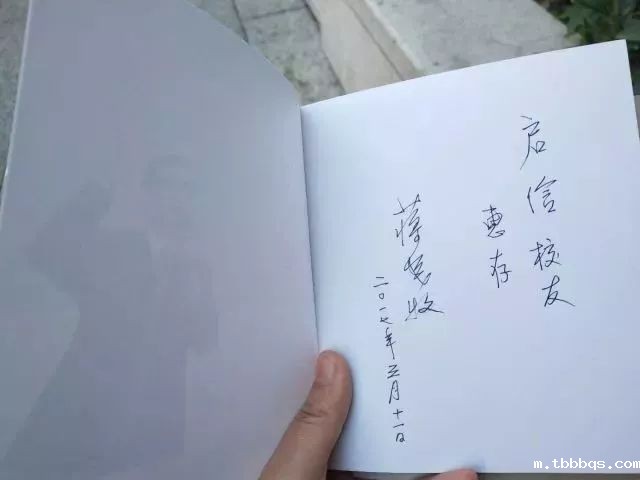 启信校友
惠存
蒋笃牧
二〇一七年三月十一日
m.tbbbqs.com